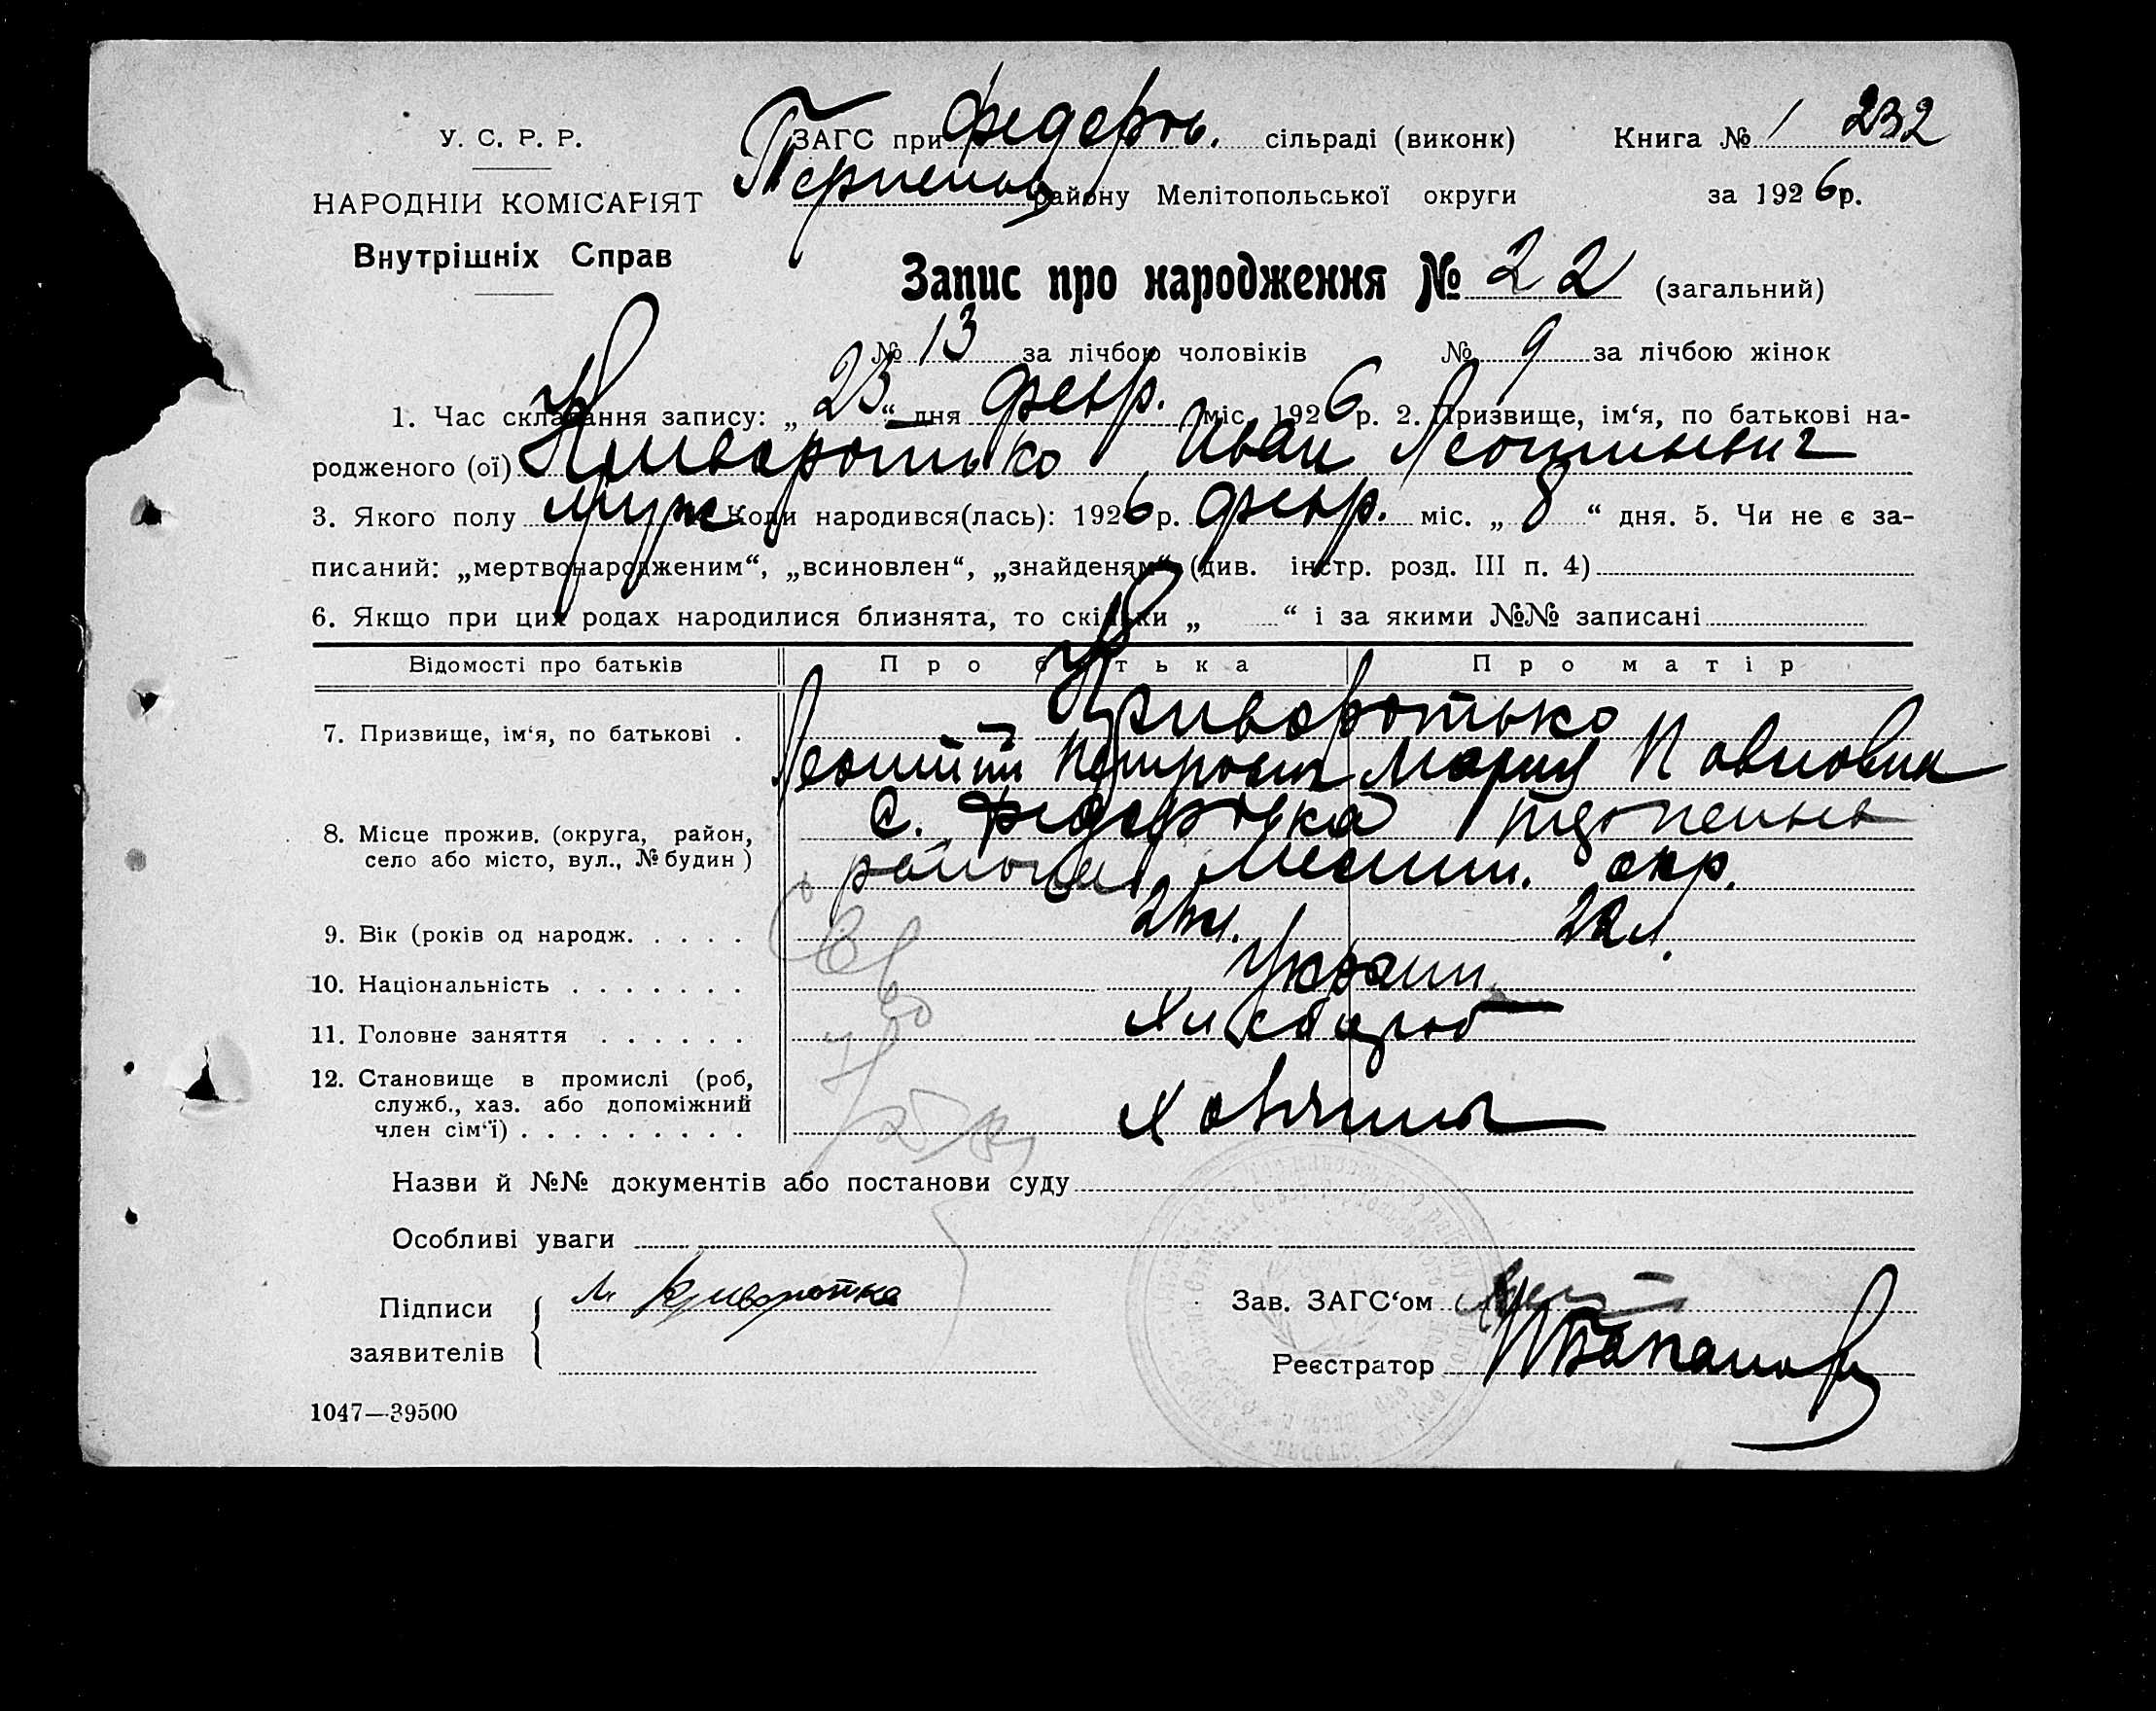 У. С. Р. Р.
НАРОДНІЙ КОМІСАРІЯТ
Внутрішніх Справ
ЗАГС при Федоров. сільраді (виконк) Книга № 1 232
Терпенов району Мелітопольської округи за 1926 р.
Запис про народження № 22 (загальний)
№ 13 за лічбою чоловіків № 9 за лічбою жінок
1. Час складання запису: „23“ дня февр. міс. 1926 р. 2. Призвище, ім‘я, по батькові на-
родженого (ої) Криворотько Иван Леонтиевич
3. Якого полу муж Коли народився(лась): 1926 р. февр. міс. „8“ дня. 5. Чи не є за-
писаний: „мертвонародженим“, „всиновлен“, „знайденям“ (див. інстр. розд. III п. 4)
6. Якщо при цих родах народилися близнята, то скільки „ “ і за якими №№ записані
Відомості про батьків Про батька Про матір
7. Призвище, ім‘я, по батькові . Криворотько
Леонтий Петрович Мария Павловна
8. Місце прожив. (округа, район, с. Федоровка
село або місто, вул., № будин) района Мелит. окр.
9. Вік (років од народж. . . . . 22 л.
10. Національність . . . . . . . Украин.
11. Головне заняття . . . . . . Хлебороб
12. Становище в промислі (роб,
служб., хаз. або допоміжний
член сім‘ї) . . . . . . . . .
Назви й №№ документів або постанови суду
Особливі уваги
Підписи Л Криворотка Зав. ЗАГС‘ом
заявителів Реєстратор
1047—39500